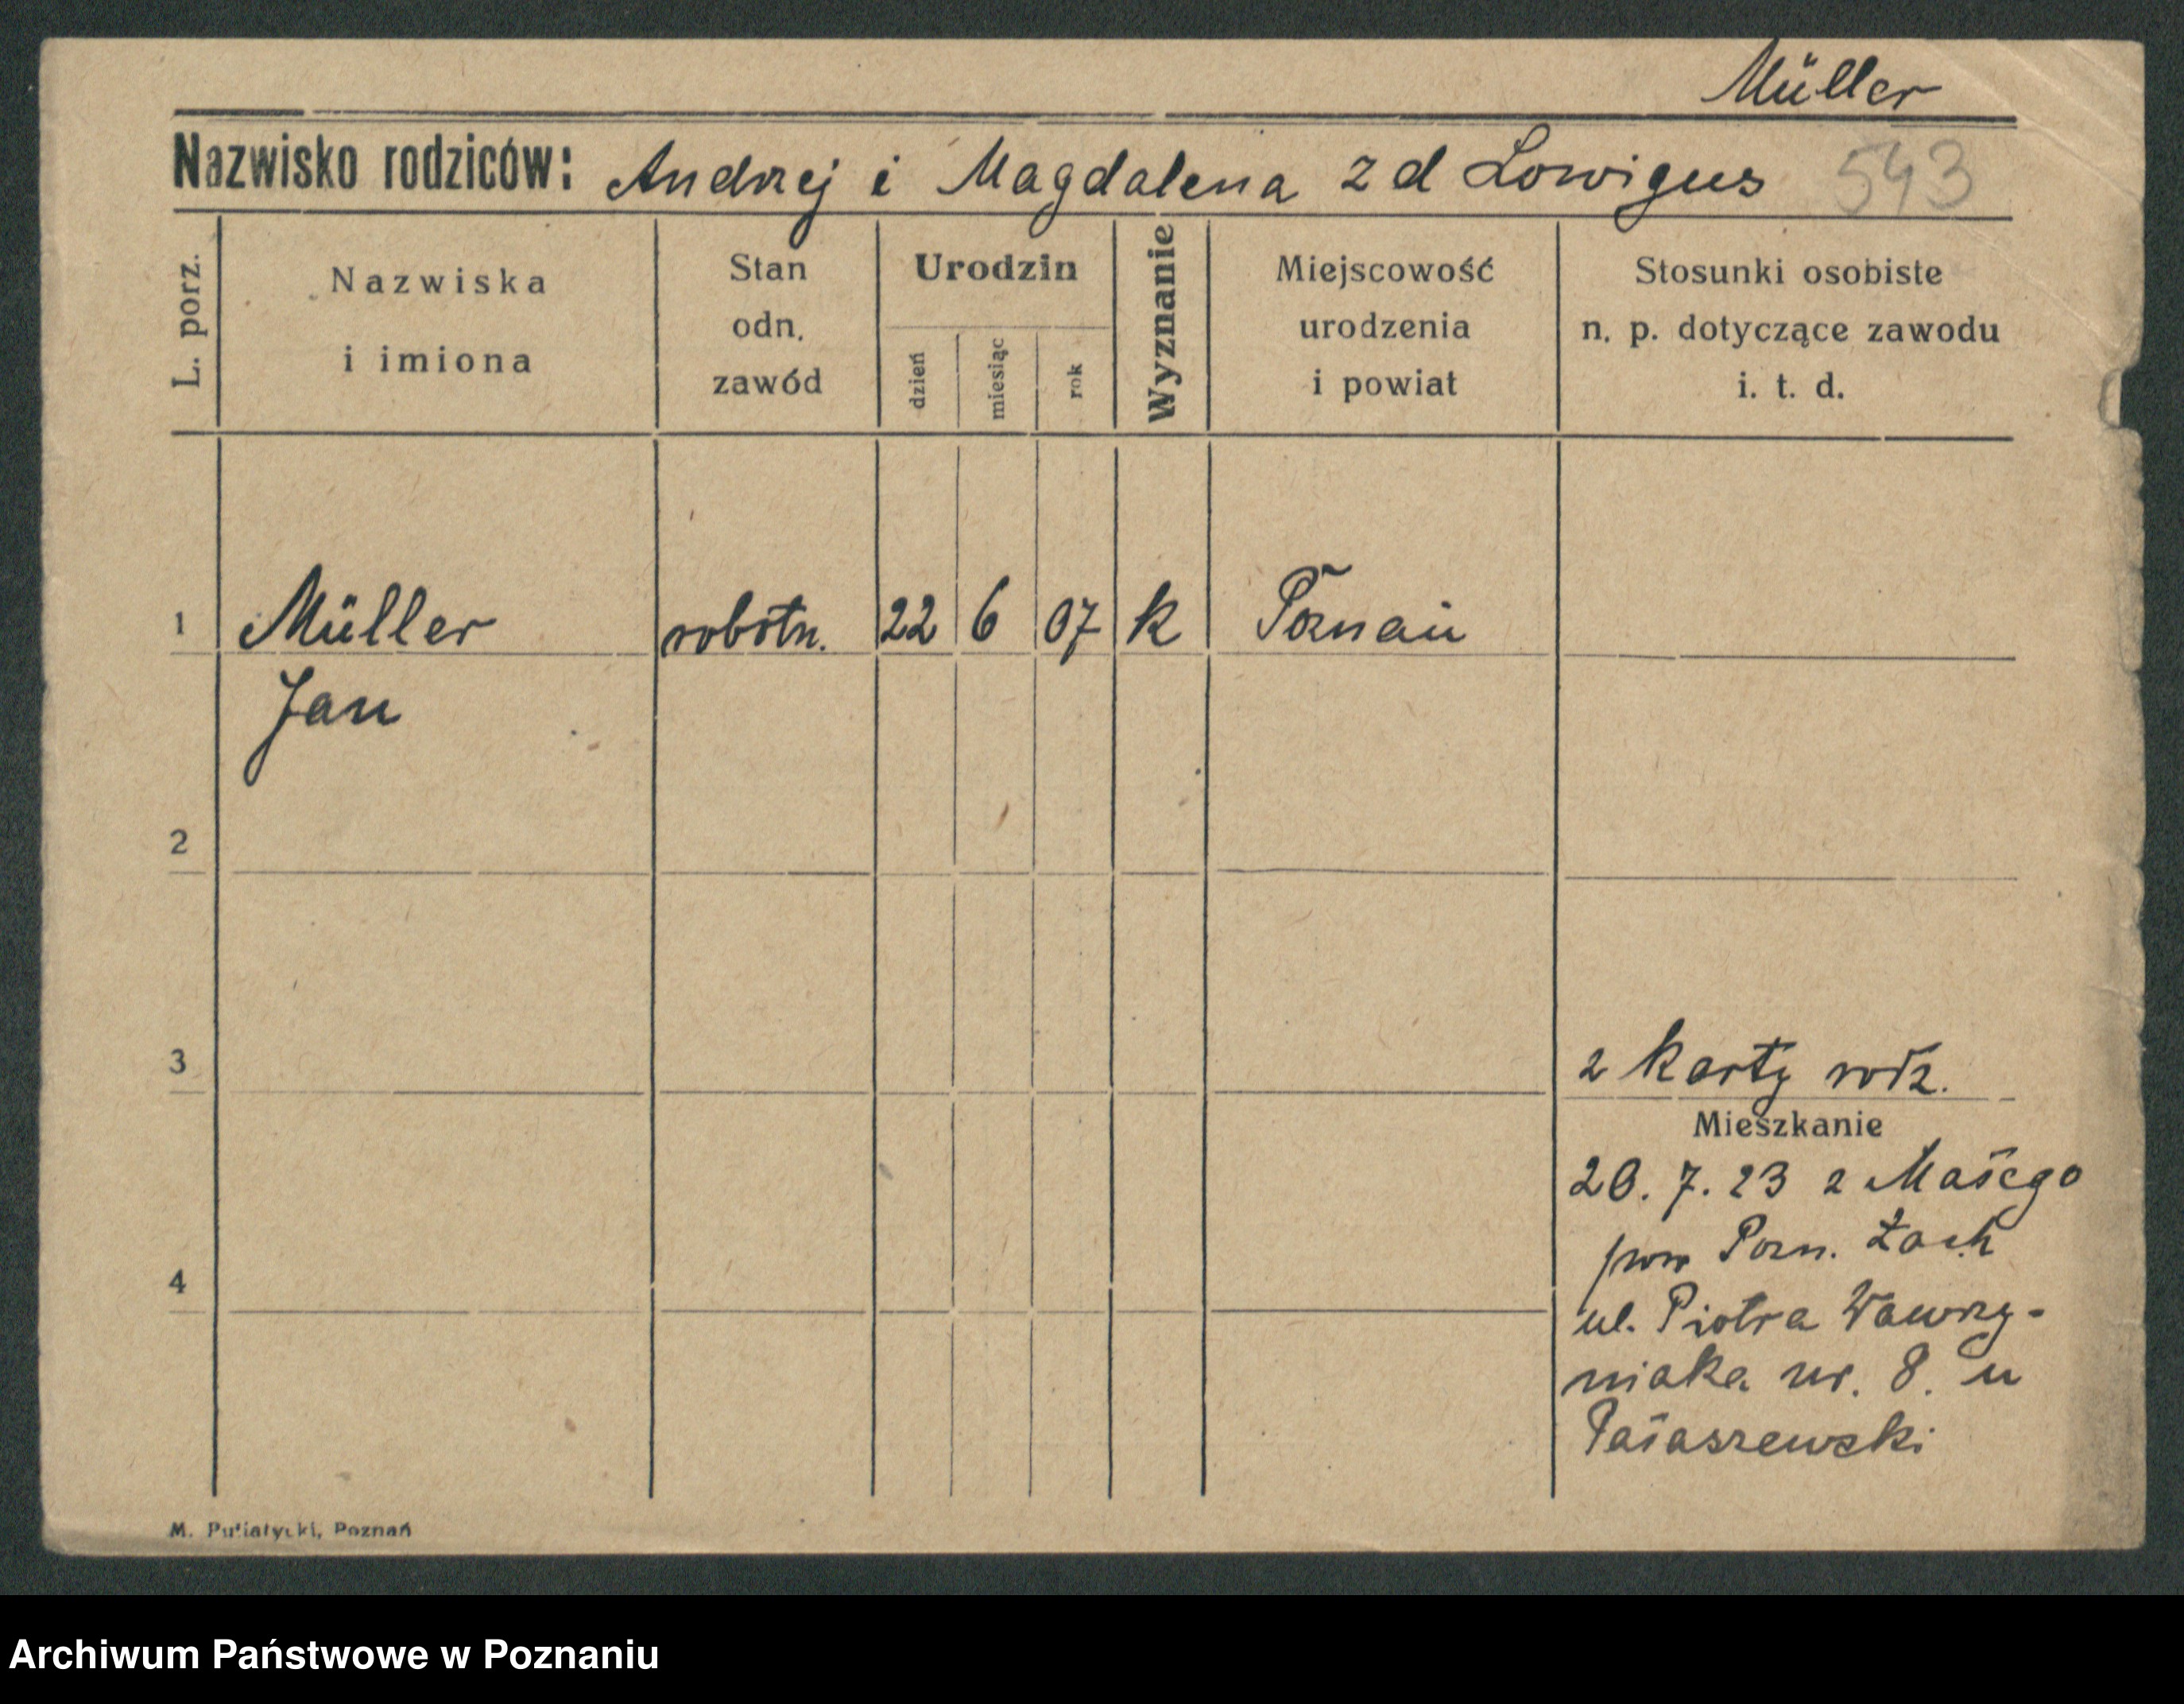 Müller
Nazwisko rodziców: Andrzej i Magdalena z d Lowigus 543
L. porz.
Nazwiska
i imiona
Stan
odn.
zawód
Urodzin
dzień
miesiąc
rok
Wyznanie
Miejscowość
urodzenia
i powiat
Stosunki osobiste
n. p. dotyczące zawodu
i. t. d.
1 Müller robotn. 22 6 07 k Poznań
Jan
2
3
2 karty rodz.
Mieszkanie
20. 7. 23 z Małego
pow Pozn. Zach
4
ul. Piotra Wawrzy-
niaka nr. 8. u
Pałaszewski
M. Putiatycki, Poznań
Archiwum Państwowe w Poznaniu